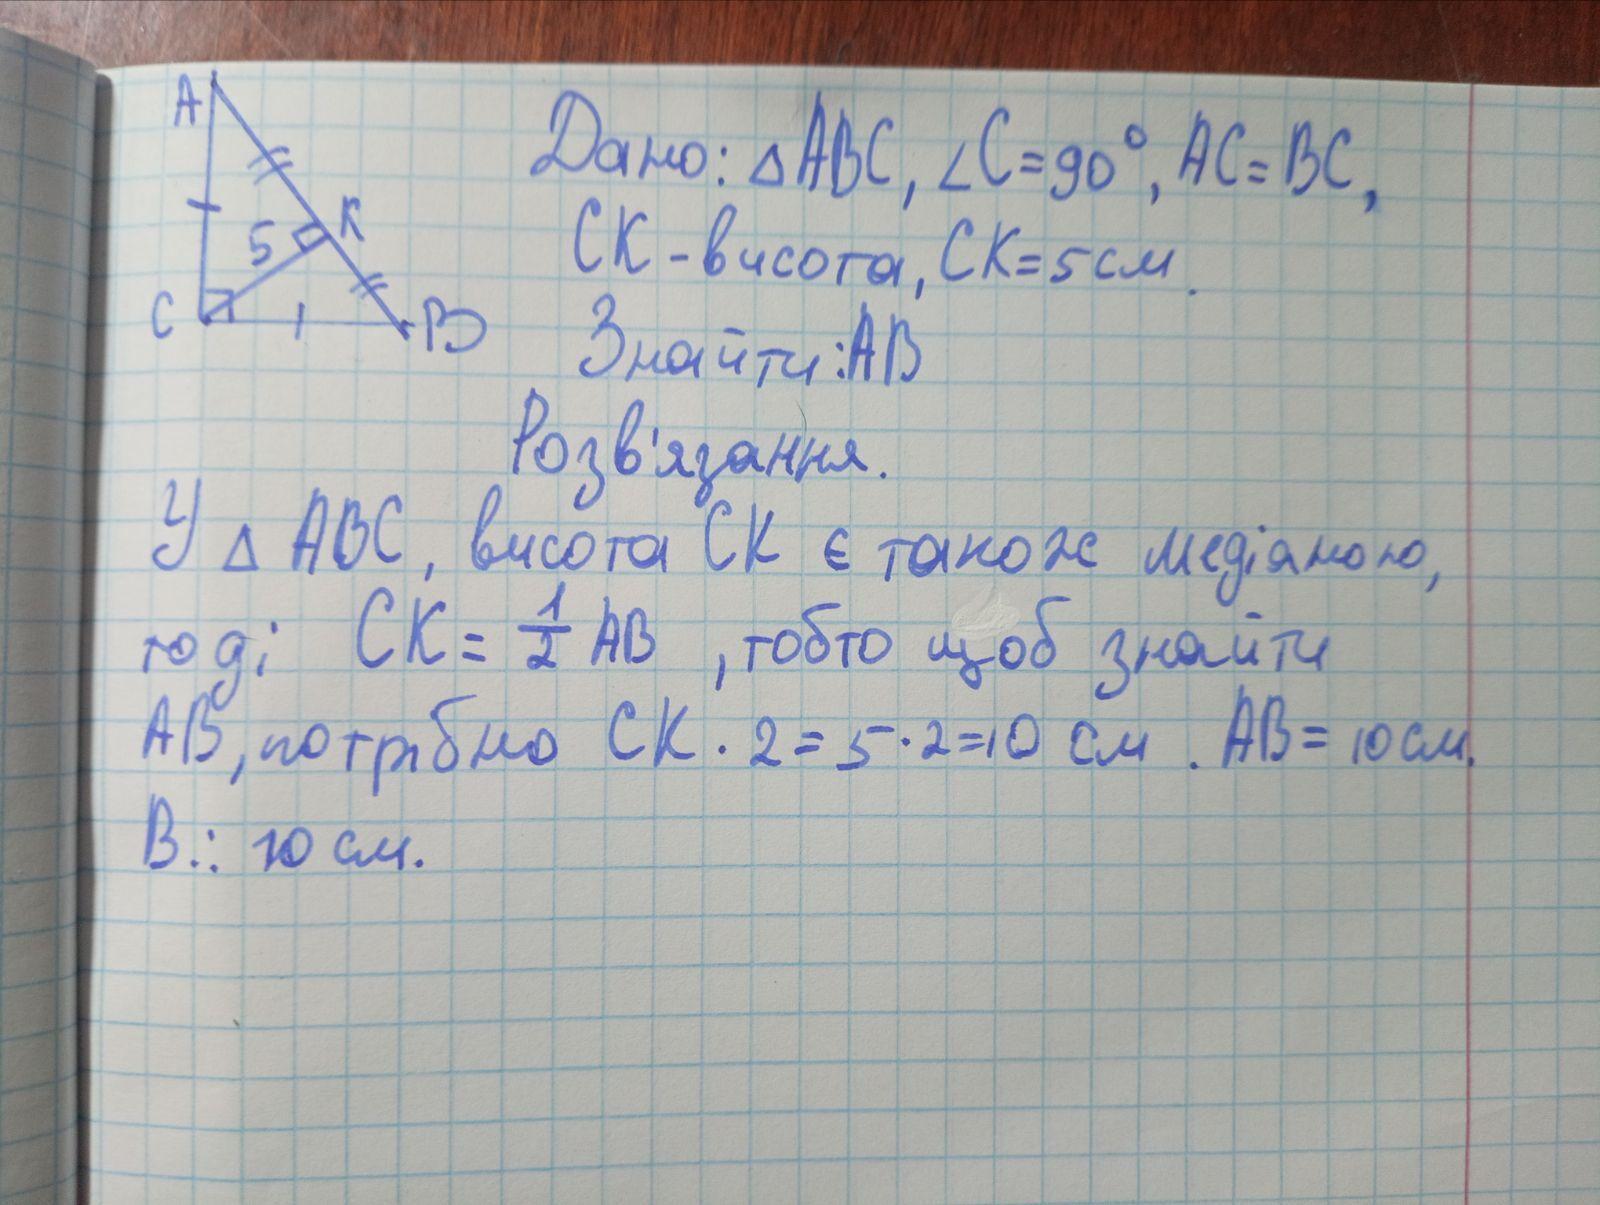 A
K
5
C
B
Дано: △ABC, ∠C=90°, AC=BC,
CK-висота, CK=5см.
Знайти:AB
Розв'язання.
У △ ABC, висота CK є також медіаною,
тоді CK= 1/2 AB , тобто щоб знайти
AB, потрібно CK · 2 = 5·2=10 см . AB= 10см.
В.: 10 см.